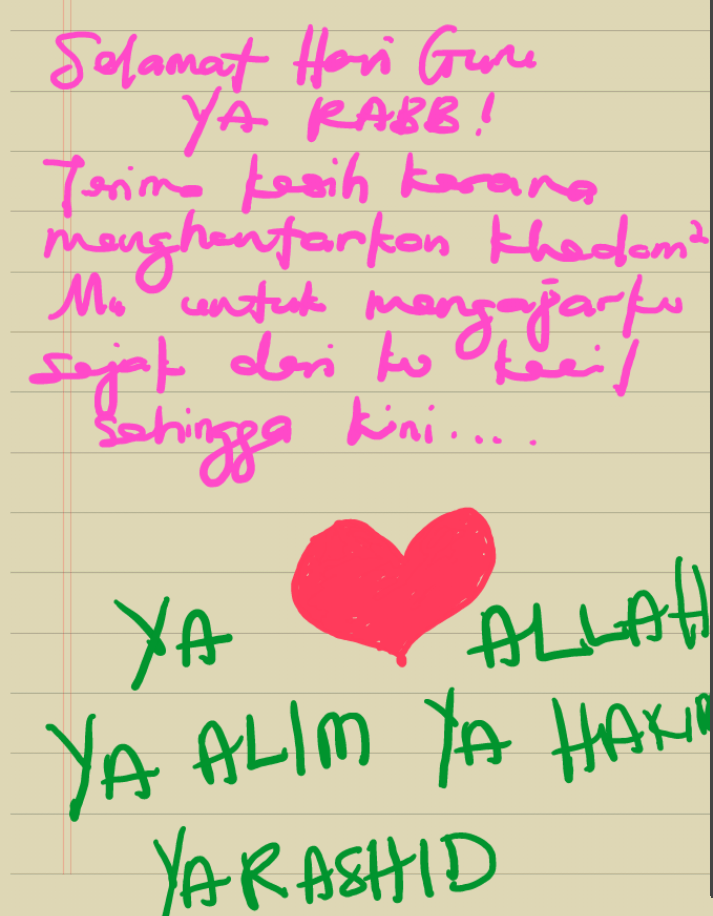 Selamat Hari Guru
YA RABB!
Terima kasih kerana
menghantarkan khadam²
Mu untuk mengajarku
sejak dari ku kecil
sehingga kini....
YA ALLAH
YA ALIM YA HAKIM
YA RASHID